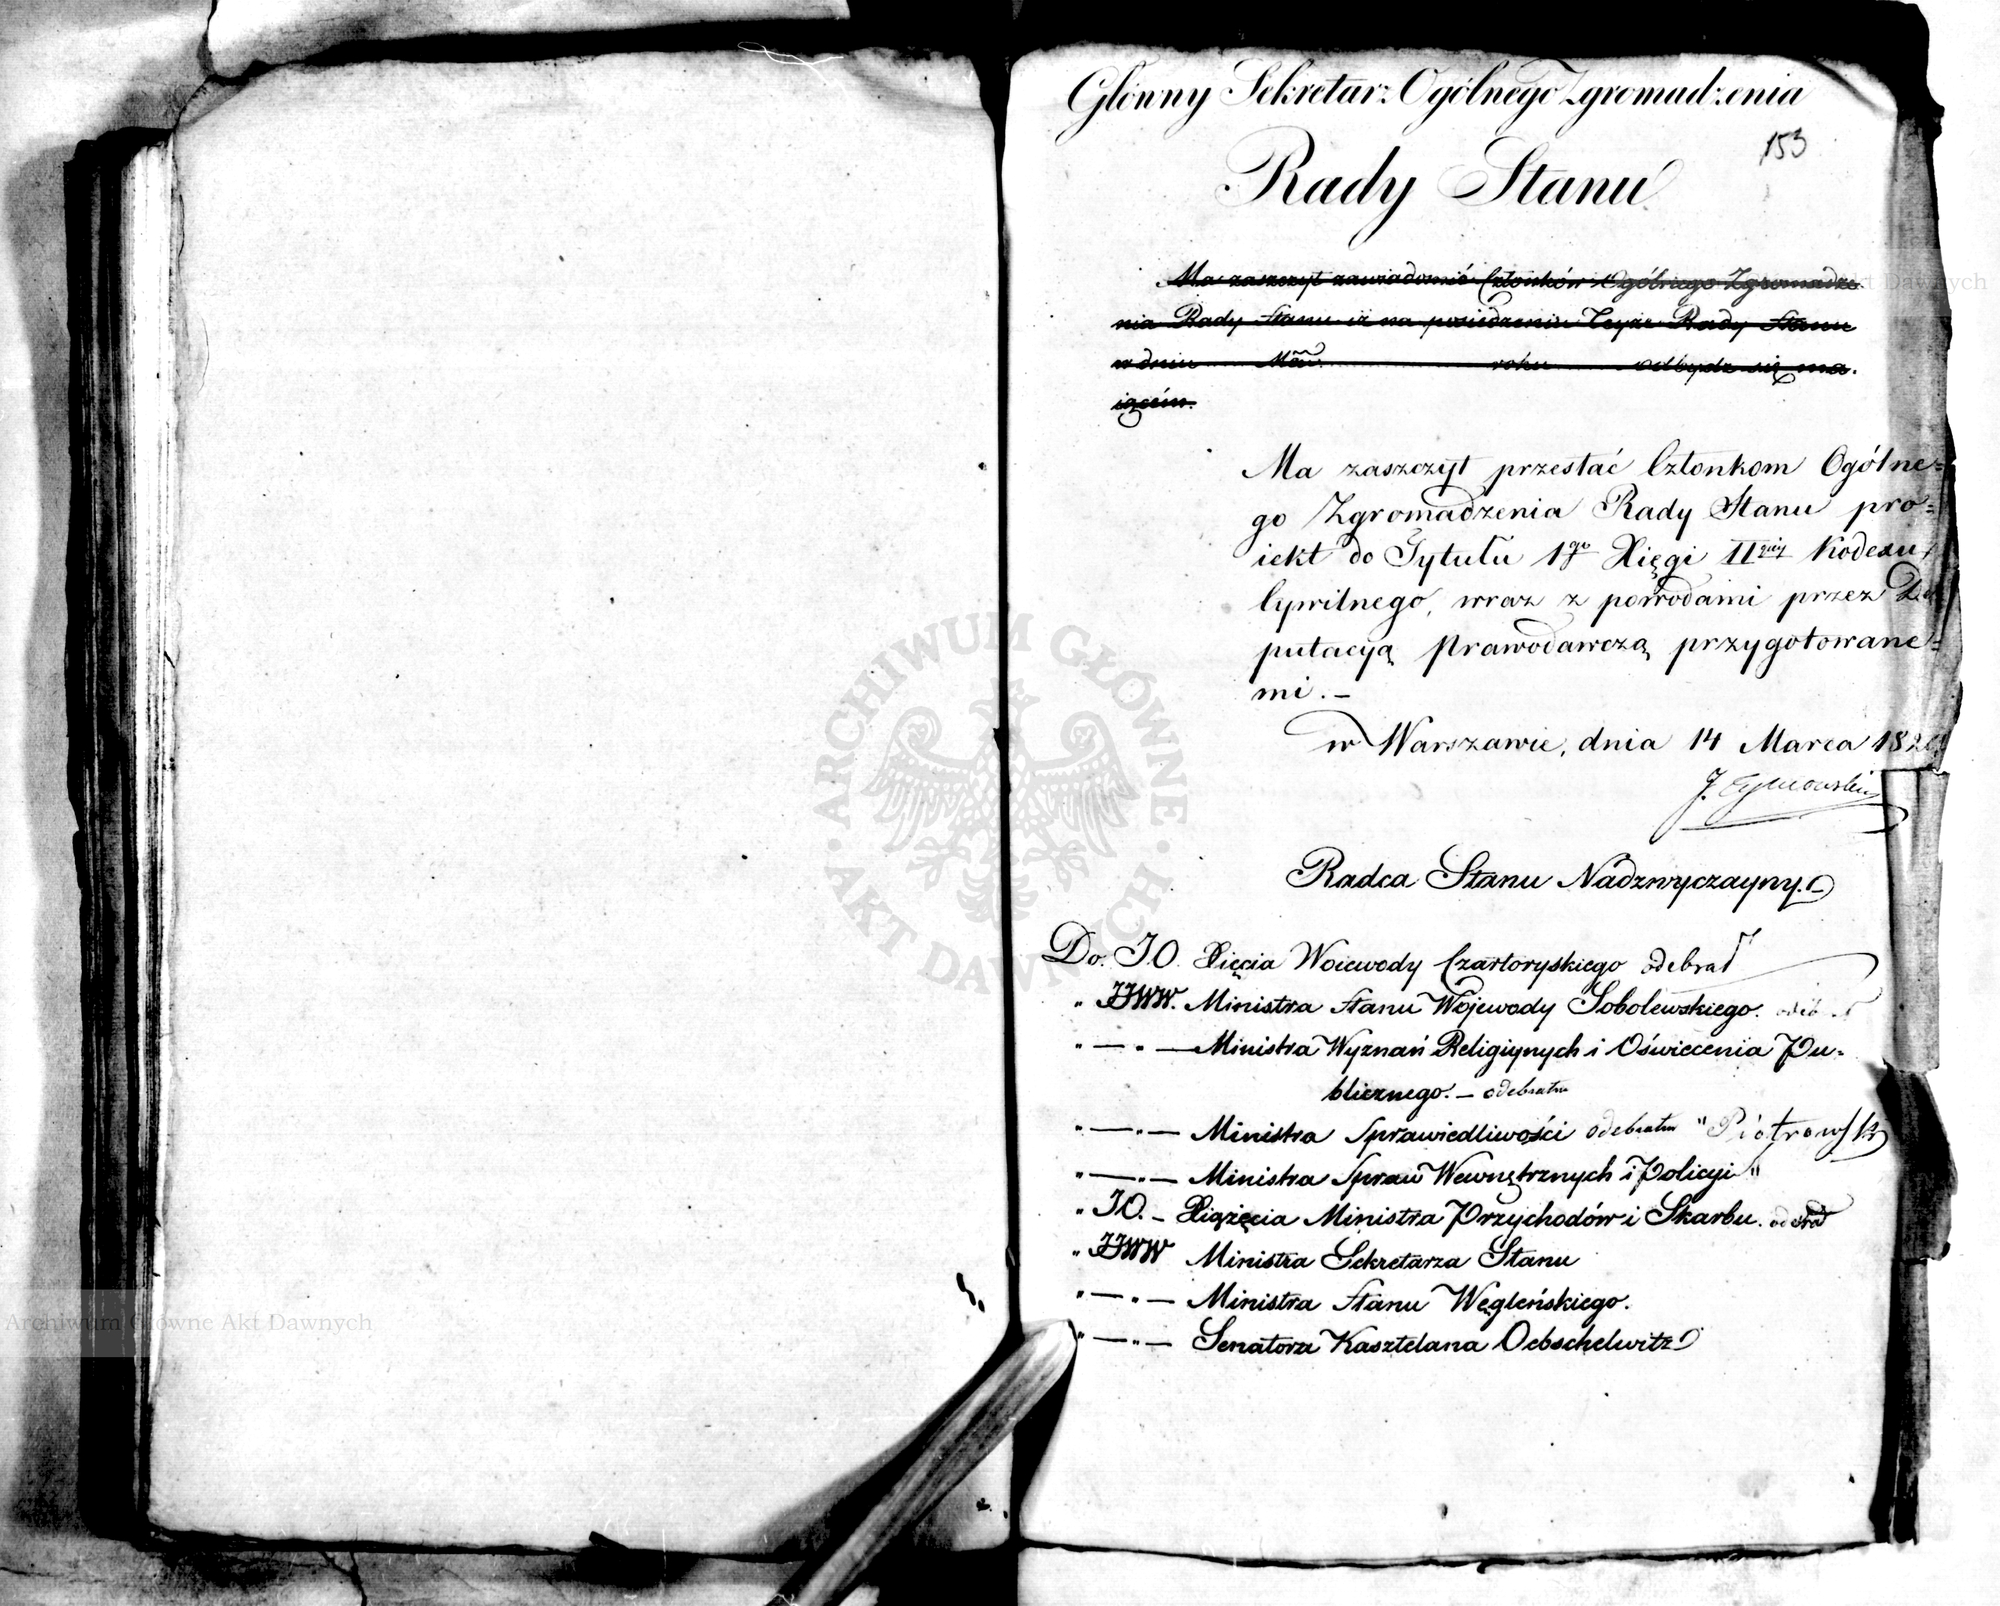 Główny Sekretarz Ogólnego Zgromadzenia
153
Rady Stanu
Ma zaszczyt zawiadomić Członków Ogólnego Zgromadze
nia Rady Stanu iż na posiedzeniu Teyże Rady Stanu
w dniu Mca roku odbydź się ma
iącém.
Ma zaszczyt przesłać Członkom Ogólne=
go Zgromadzenia Rady Stanu pro=
iekt do Tytułu 1go Xięgi IIgiéy Kodexu
Cywilnego, wraz z powodami przez De
putacyą Prawodawczą przygotowane=
mi.—
w Warszawie, dnia 14 Marca 182
J. Tymowski
Radca Stanu Nadzwyczayny.
Do. JO. Xięcia Woiewody Czartoryskiego odebrał
" JJWW. Ministra Stanu Wojewody Sobolewskiego.
" — " — Ministra Wyznań Religiynych i Oświecenia Pu=
blicznego. — odebrałm
" — " — Ministra Sprawiedliwości odebrałm "Piotrowski
" — " — Ministra Spraw Wewnętrznych i Policyi "
" JO. — Xiążęcia Ministra Przychodów i Skarbu. odebrał
" JJWW Ministra Sekretarza Stanu
" — " — Ministra Stanu Węgleńskiego.
" — " — Senatora Kasztelana Oebschelwitz
ARCHIWUM GŁÓWNE · AKT DAWNYCH ·
Archiwum Główne Akt Dawnych